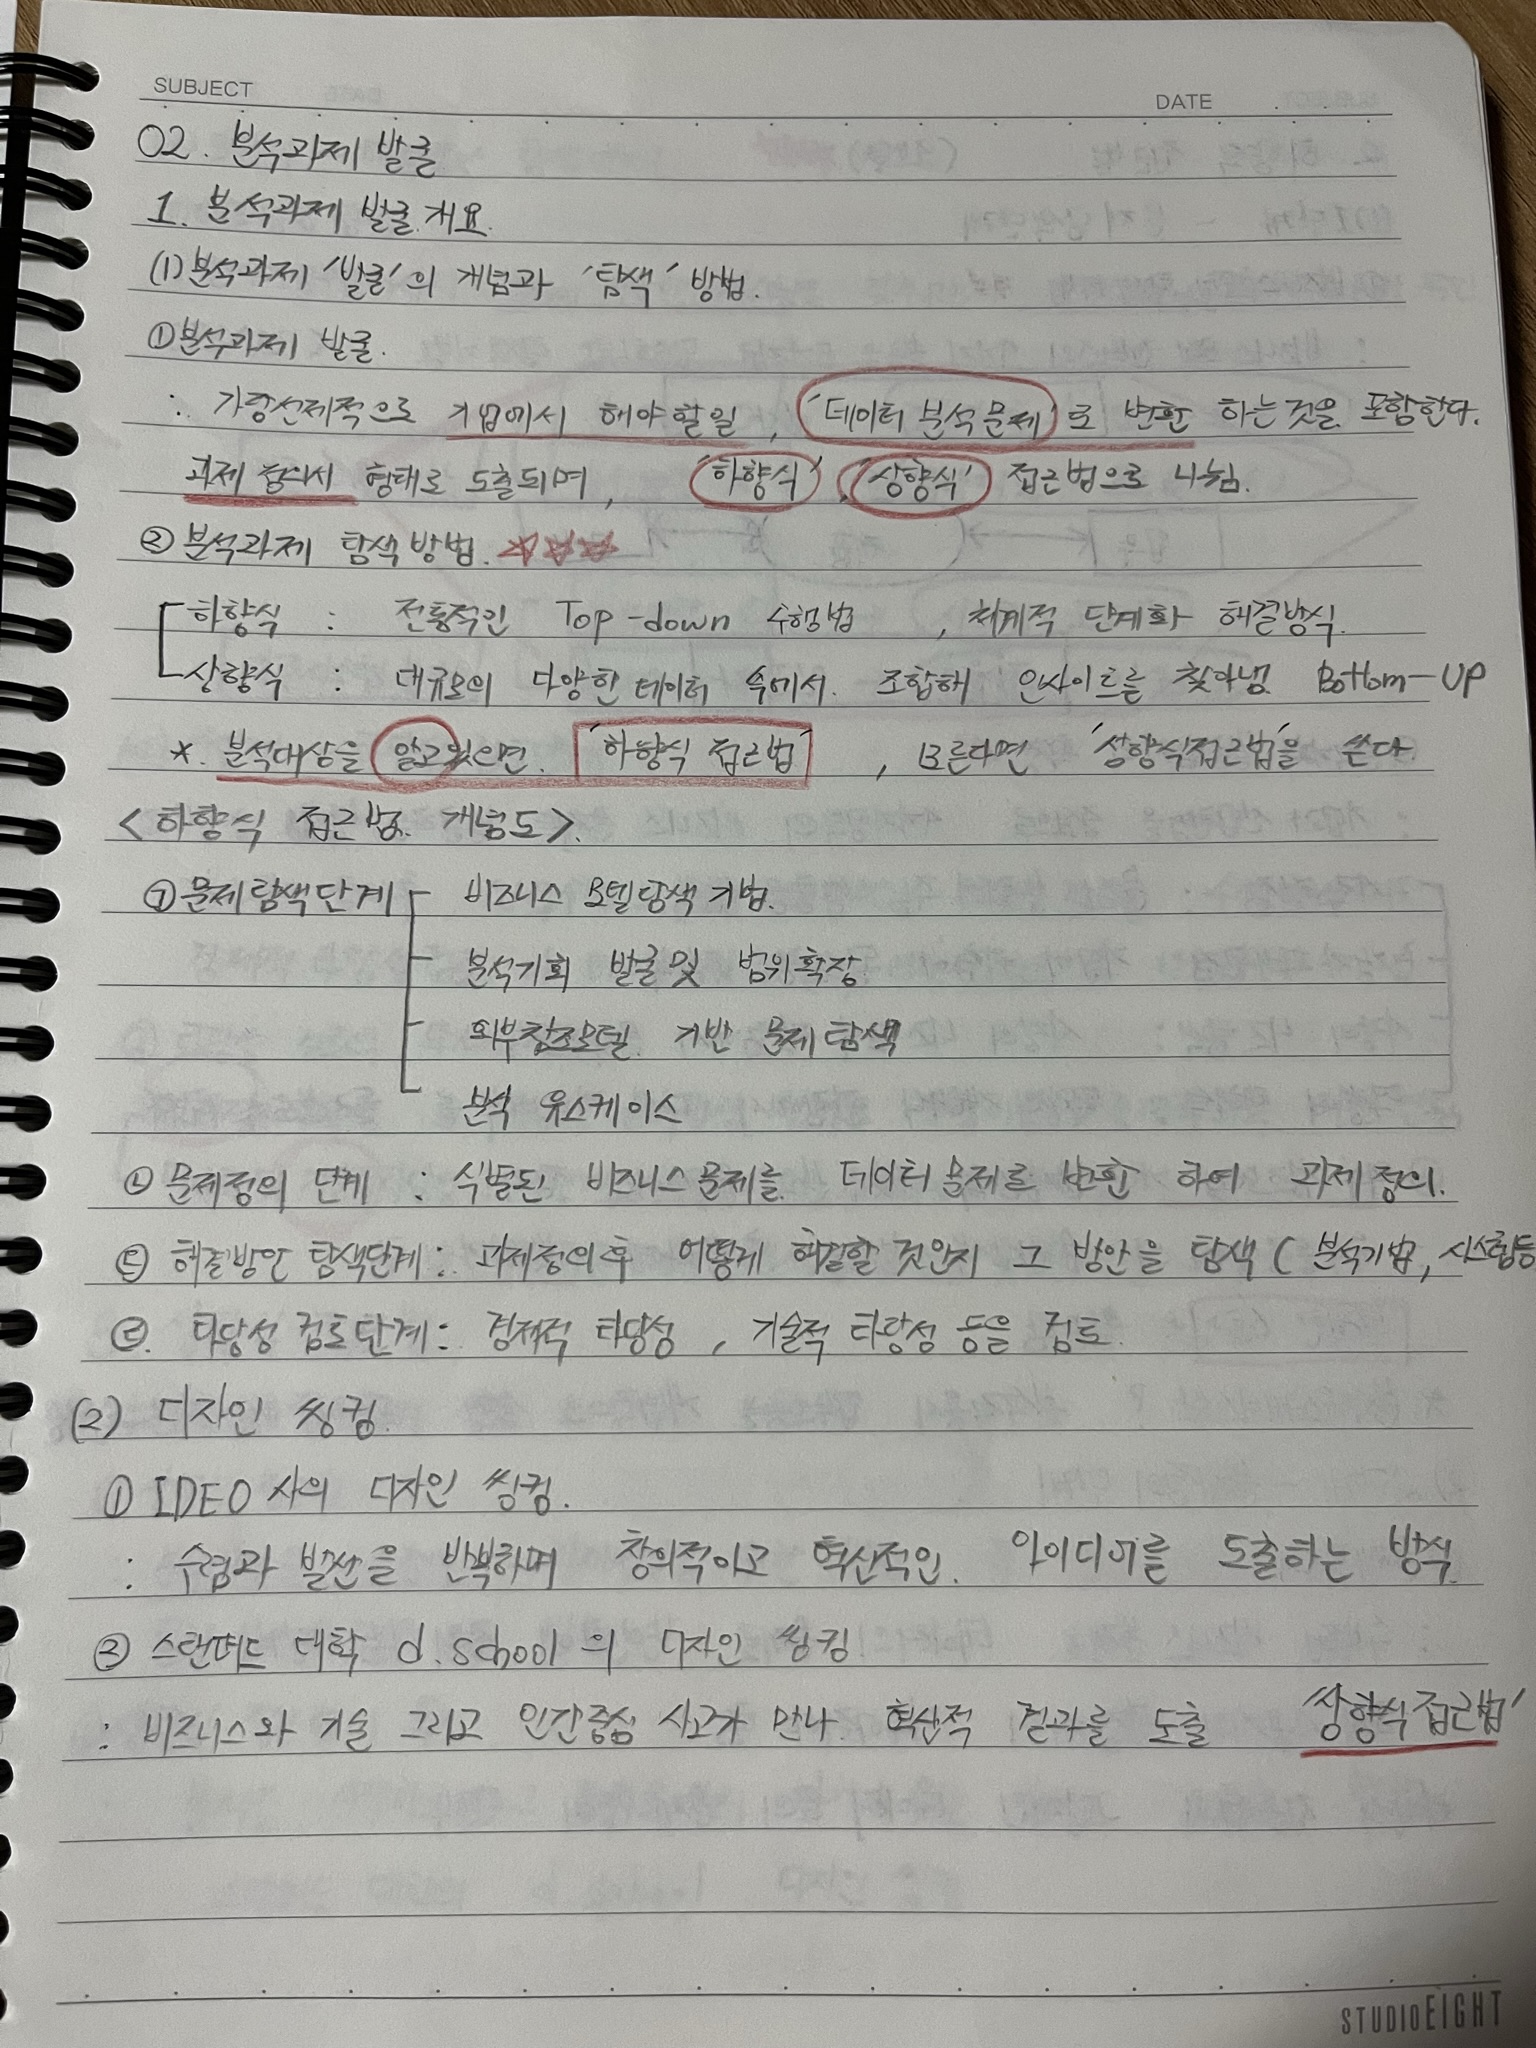 SUBJECT
DATE
02. 분석과제 발굴
1. 분석과제 발굴 개요.
(1) 분석과제 '발굴'의 개념과 '탐색' 방법.
① 분석과제 발굴.
: 가장선제적으로 기업에서 해야할일, '데이터 분석문제'로 변환 하는것을 포함한다.
과제 정의서 형태로 도출되며, '하향식', '상향식' 접근법으로 나뉨.
② 분석과제 탐색방법. ☆☆☆
하향식 : 전통적인 Top-down 수행법, 체계적 단계화 해결방식.
상향식 : 대규모의 다양한 데이터 속에서 조합해 인사이트를 찾아냄. Bottom-UP
* 분석대상을 알고있으면. '하향식 접근법', 모른다면 '상향식접근법'을 쓴다.
<하향식 접근법. 개념도>.
㉠ 문제탐색단계 비즈니스 모델탐색 기법.
분석기회 발굴 및 범위확장
외부참조모델. 기반 문제탐색
분석 유스케이스
㉡ 문제정의 단계 : 식별된 비즈니스문제를 데이터문제로 변환 하여 과제정의.
㉢ 해결방안 탐색단계 : 과제정의후 어떻게 해결할 것인지 그 방안을 탐색 ( 분석기법, 시스템등
㉣. 타당성 검토단계 : 경제적 타당성, 기술적 타당성 등을 검토.
(2) 디자인 씽킹.
① IDEO사의 디자인 씽킹.
: 수렴과 발산을 반복하며 창의적이고 혁신적인. 아이디어를 도출하는 방식.
② 스탠퍼드 대학 d.school의 디자인 씽킹
: 비즈니스와 기술 그리고 인간중심 사고가 만나 혁신적 결과를 도출 '상향식접근법'
STUDIOEIGHT